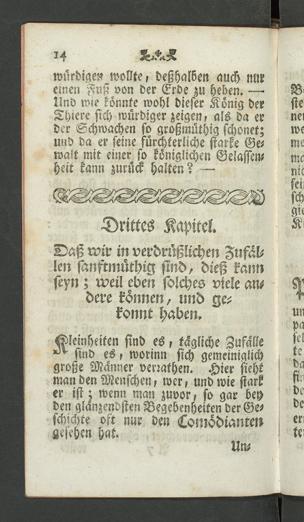 14
würdigen wollte, deßhalben auch nur
einen Fuß von der Erde zu heben. —
Und wie könnte wohl dieser König der
Thiere sich würdiger zeigen, als da er
der Schwachen so großmüthig schonet;
und da er seine fürchterliche starke Ge-
walt mit einer so königlichen Gelassen-
heit kann zurück halten? —
Drittes Kapitel.
Daß wir in verdrüßlichen Zufäl-
len sanftmüthig sind, dieß kann
seyn; weil eben solches viele an-
dere können, und ge-
konnt haben.
Kleinheiten sind es, tägliche Zufälle
sind es, worinn sich gemeiniglich
große Männer verrathen. Hier sieht
man den Menschen, wer, und wie stark
er ist; wenn man zuvor, so gar bey
den glänzendsten Begebenheiten der Ge-
schichte oft nur den Comödianten
gesehen hat.
Un-